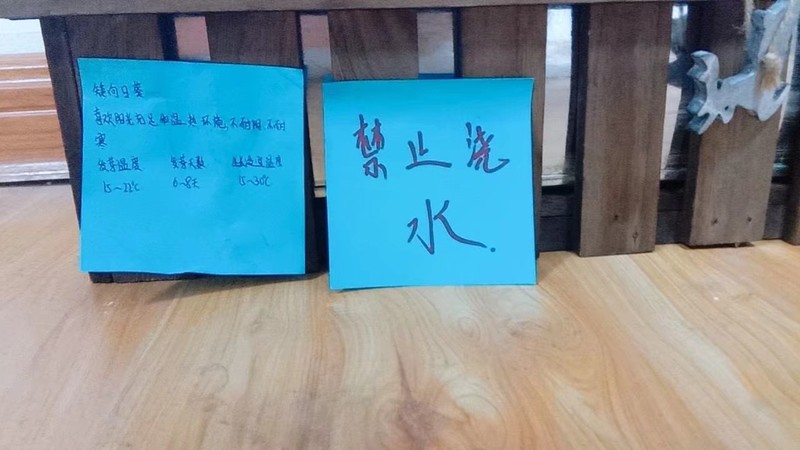 矮向日葵
喜欢阳光充足和温热环境,不耐阴,不耐
寒
发芽温度 发芽天数 生长适温温度
15~22℃ 6~8天 15~30℃
禁止浇
水.